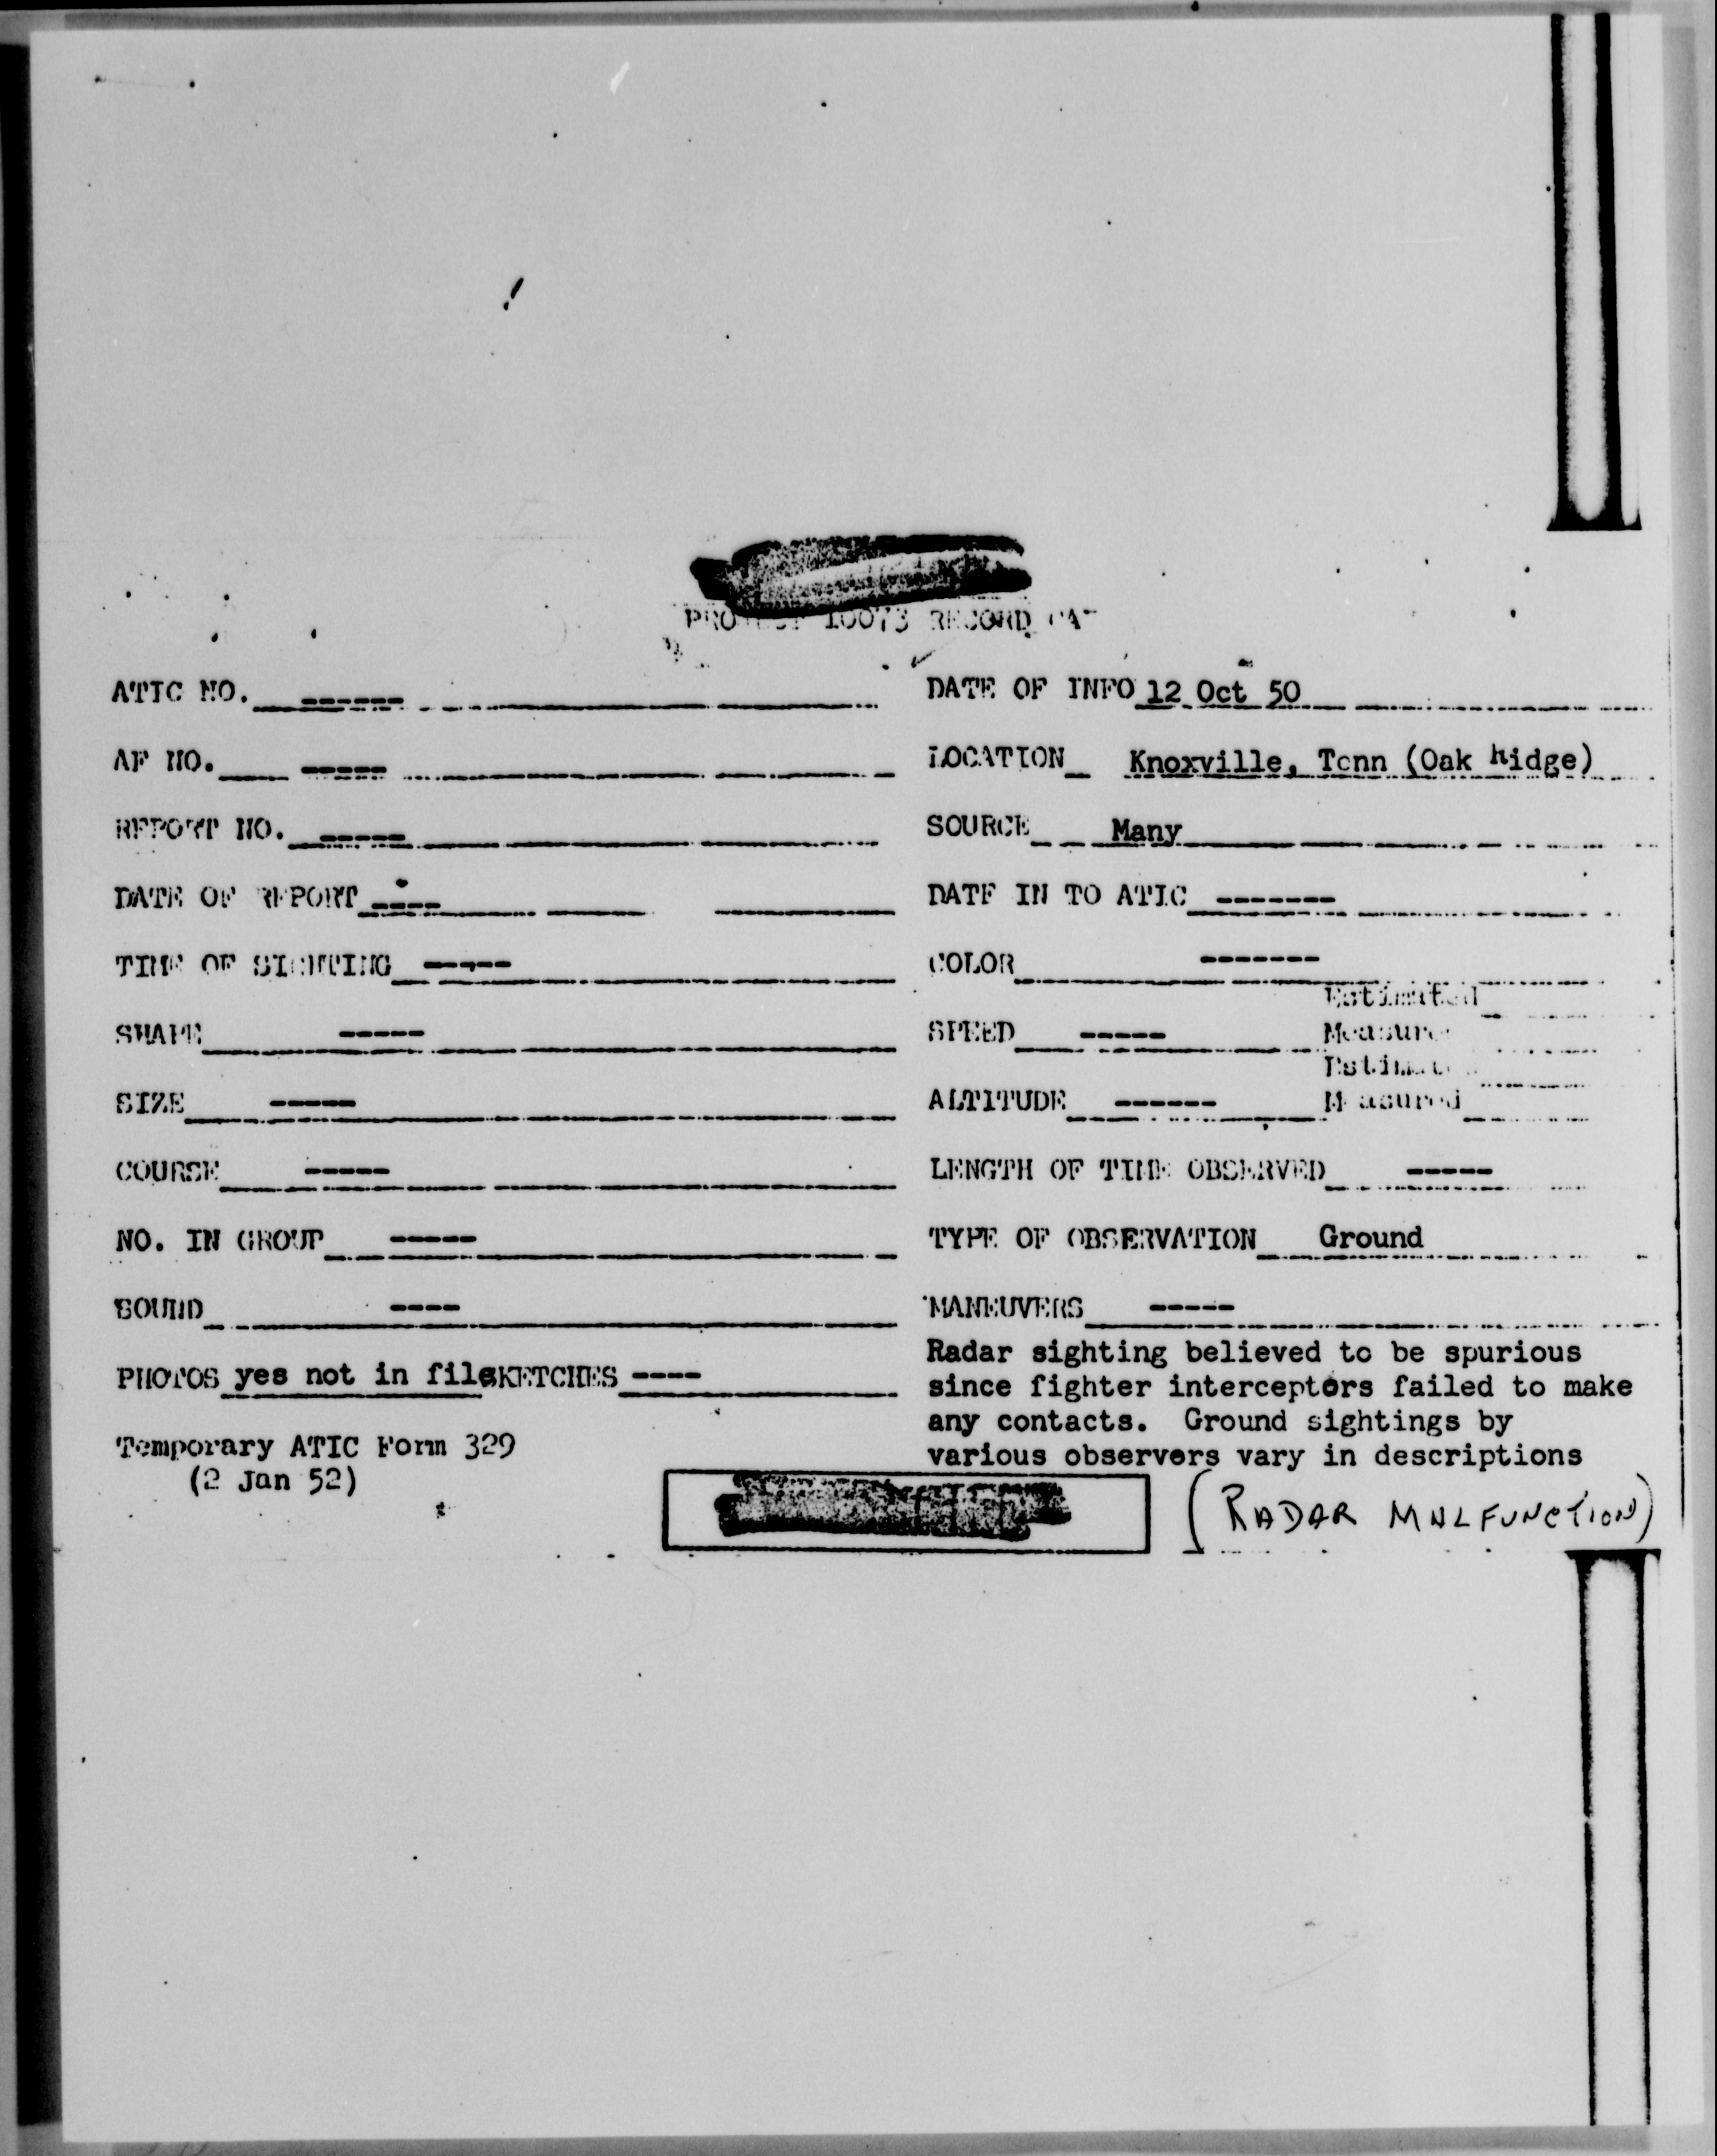 PROJECT 10073 RECORD CA
ATIC NO. ------
DATE OF INFO 12 Oct 50
AF NO. -----
LOCATION Knoxville, Tenn (Oak Ridge)
REPORT NO. -----
SOURCE Many
DATE OF REPORT ----
DATE IN TO ATIC -------
TIME OF SIGHTING -----
COLOR -------
Estimated
SHAPE -----
SPEED -----
Measured
Estimated
SIZE -----
ALTITUDE ------
Measured
COURSE -----
LENGTH OF TIME OBSERVED -----
NO. IN GROUP -----
TYPE OF OBSERVATION Ground
SOUND ----
MANEUVERS -----
PHOTOS yes not in file SKETCHES ----
Radar sighting believed to be spurious
since fighter interceptors failed to make
any contacts. Ground sightings by
various observers vary in descriptions
Temporary ATIC Form 329
(2 Jan 52)
(RADAR MALFUNCTION)